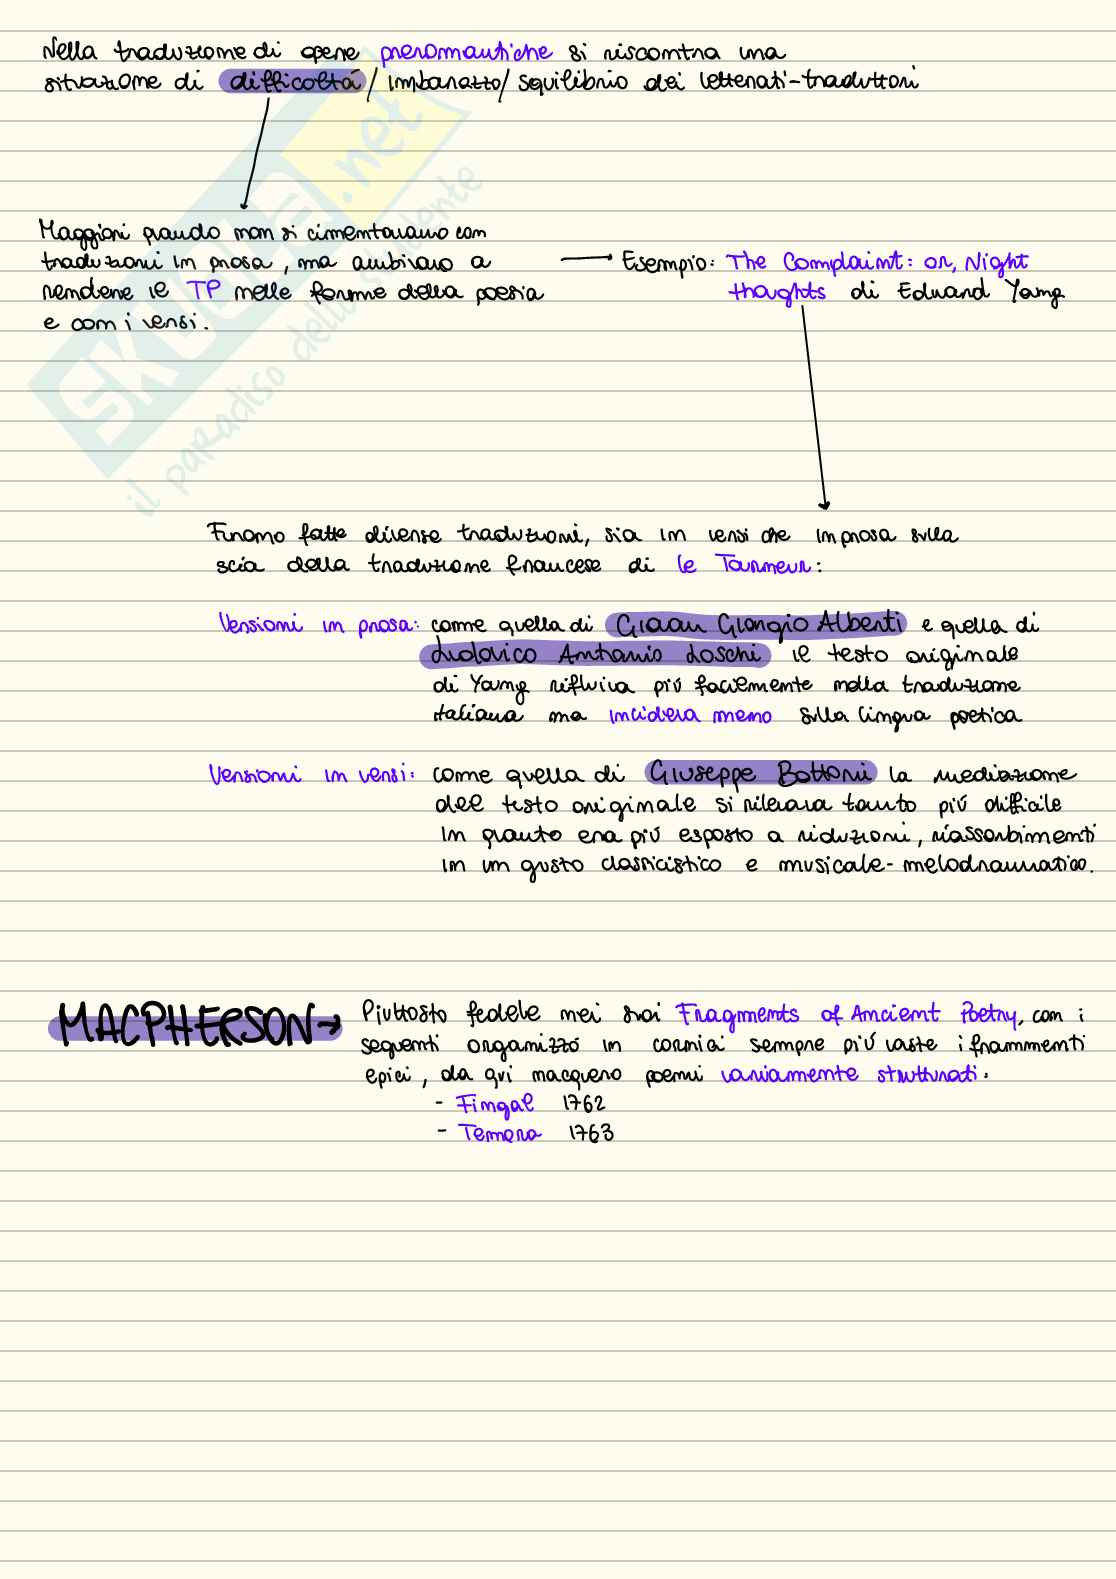 Nella traduzione di opere preromantiche si riscontra una
situazione di difficoltà / imbarazzo / squilibrio dei letterati-traduttori
Maggiori quando non si cimentavano con
traduzioni in prosa, ma ambivano a
rendere il TP nelle forme della poesia
e con i versi.
Esempio: The Complaint: or, Night
thoughts di Edward Young
Furono fatte diverse traduzioni, sia in versi che in prosa sulla
scia della traduzione francese di le Tourneur:
Versioni in prosa: come quella di Giovan Giorgio Alberti e quella di
Ludovico Antonio Loschi il testo originale
di Young rifluiva più facilmente nella traduzione
italiana ma incideva meno sulla lingua poetica
Versioni in versi: come quella di Giuseppe Bottoni la mediazione
del testo originale si rilevava tanto più difficile
in quanto era più esposto a riduzioni, riassorbimenti
in un gusto classicistico e musicale-melodrammatico.
MACPHERSON → Piuttosto fedele nei suoi Fragments of Ancient Poetry, con i
seguenti organizzò in cornici sempre più vaste i frammenti
epici, da qui nacquero poemi variamente strutturati:
- Fingal 1762
- Temora 1763
SKUOLA.net
il paradiso dello studente